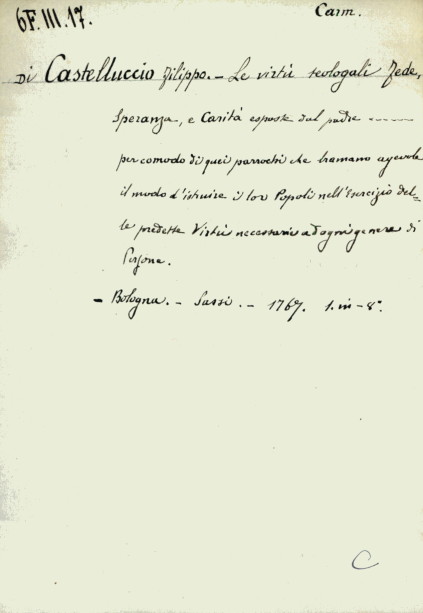 6F.III.17.
Carm.
Di Castelluccio Filippo. - Le virtù teologali Fede,
Speranza, e Carità esposte dal padre ----
per comodo di quei parrochi che bramano agevole
il modo d'istuire i lor Popoli nell'Esercizio del=
le predette Virtù necessarie ad ogni genere di
Persone.
- Bologna. - Sassi. - 1767. 1. in - 8°.
C